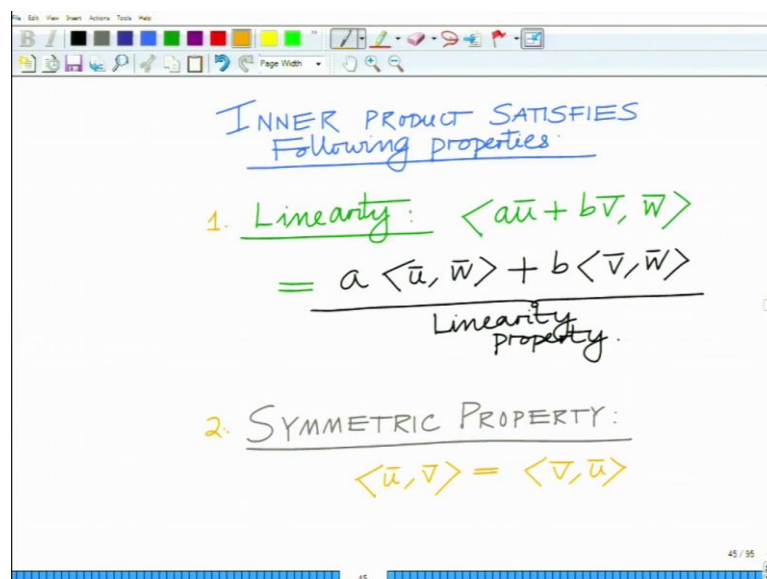 File Edit View Insert Actions Tools Help
B I Page Width
INNER PRODUCT SATISFIES
Following properties.
1. Linearity: <aū + bv̄, w̄>
= a <ū, w̄> + b <v̄, w̄>
Linearity
property.
2. SYMMETRIC PROPERTY:
<ū, v̄> = <v̄, ū>
45 / 95
45